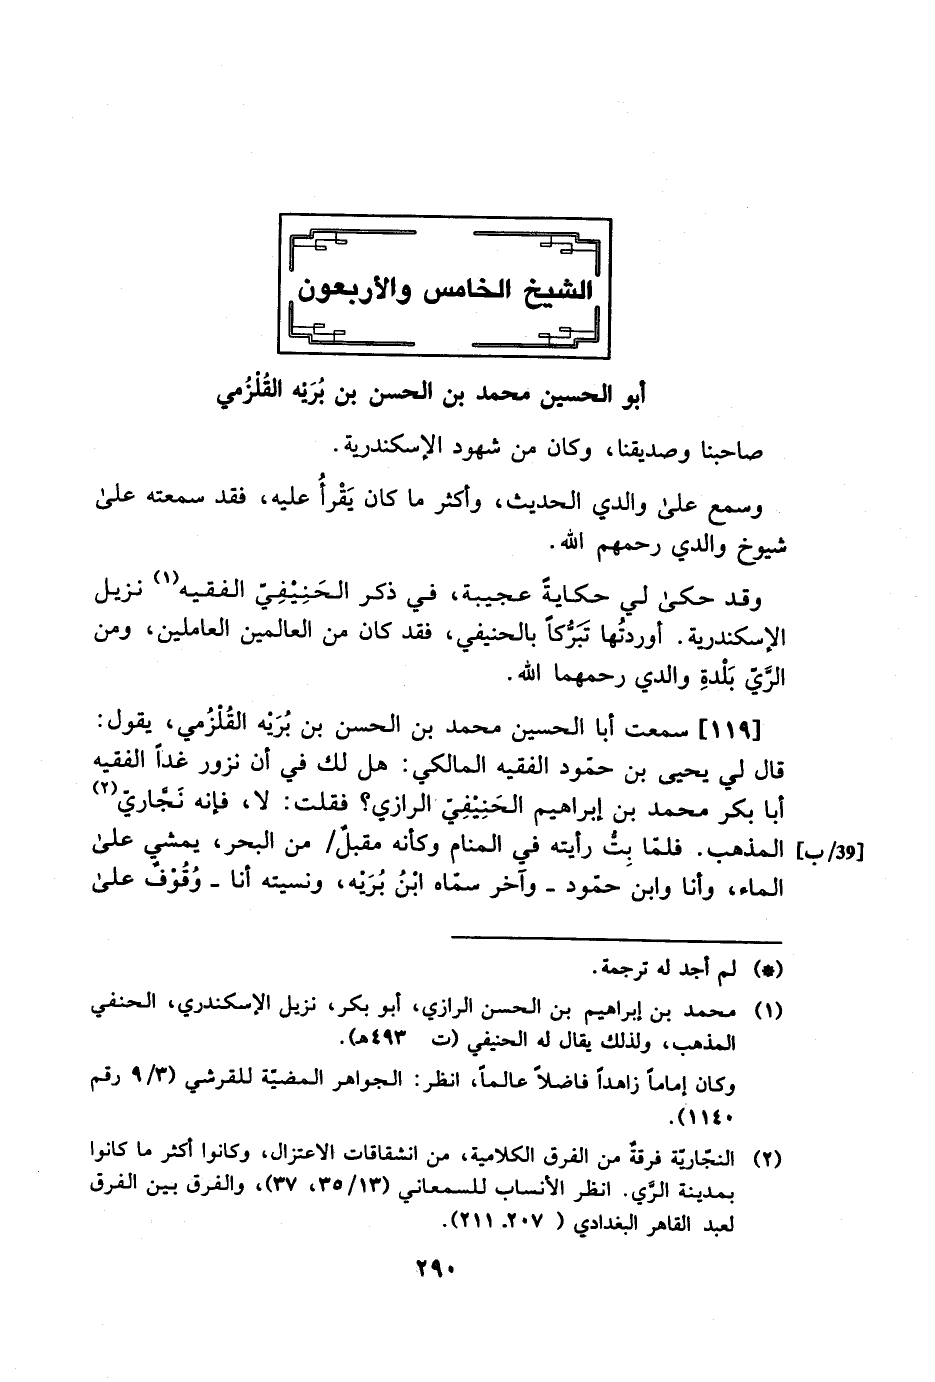 الشيخ الخامس والأربعون
أبو الحسين محمد بن الحسن بن بُرَيْه القُلْزُمي
صاحبنا وصديقنا، وكان من شهود الإسكندرية.
وسمع علىٰ والدي الحديث، وأكثر ما كان يَقْرأُ عليه، فقد سمعته علىٰ
شيوخ والدي رحمهم الله.
وقد حكىٰ لي حكايةً عجيبة، في ذكر الحَنِيْفِيّ الفقيه(١) نزيل
الإسكندرية. أوردتُها تَبَرُّكاً بالحنيفي، فقد كان من العالمين العاملين، ومن
الرَّيّ بَلْدةِ والدي رحمهما الله.
[١١٩] سمعت أبا الحسين محمد بن الحسن بن بُرَيْه القُلْزُمي، يقول:
قال لي يحيى بن حمّود الفقيه المالكي: هل لك في أن نزور غداً الفقيه
أبا بكر محمد بن إبراهيم الحَنِيْفِيّ الرازي؟ فقلت: لا، فإنه نَجَّاريّ(٢)
[39/ب] المذهب. فلمّا بِتُّ رأيته في المنام وكأنه مقبلٌ/ من البحر، يمشي علىٰ
الماء، وأنا وابن حمّود - وآخر سمّاه ابْنُ بُرَيْه، ونسيته أنا - وُقُوْفٌ علىٰ
(*) لم أجد له ترجمة.
(١) محمد بن إبراهيم بن الحسن الرازي، أبو بكر، نزيل الإسكندري، الحنفي
المذهب، ولذلك يقال له الحنيفي (ت ٤٩٣هـ).
وكان إماماً زاهداً فاضلاً عالماً، انظر: الجواهر المضيّة للقرشي (٩/٣ رقم
١١٤٠).
(٢) النجّاريّة فرقةٌ من الفرق الكلامية، من انشقاقات الاعتزال، وكانوا أكثر ما كانوا
بمدينة الرَّي. انظر الأنساب للسمعاني (٣٥/١٣، ٣٧)، والفرق بين الفرق
لعبد القاهر البغدادي ( ٢٠٧ـ ٢١١).
٢٩٠